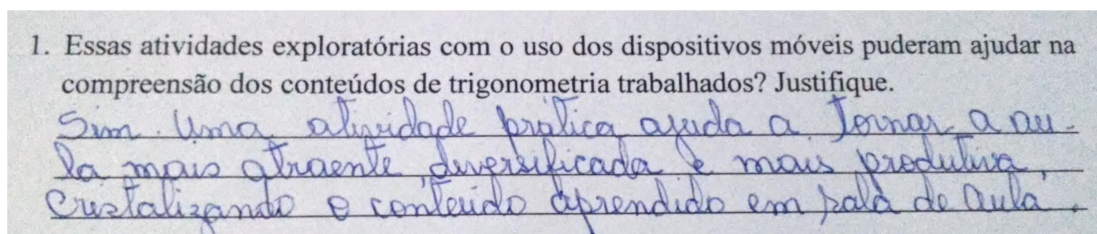 1. Essas atividades exploratórias com o uso dos dispositivos móveis puderam ajudar na
compreensão dos conteúdos de trigonometria trabalhados? Justifique.
Sim. Uma atividade prática ajuda a tornar a au-
la mais atraente, diversificada e mais produtiva,
cristalizando o conteúdo aprendido em sala de aula.